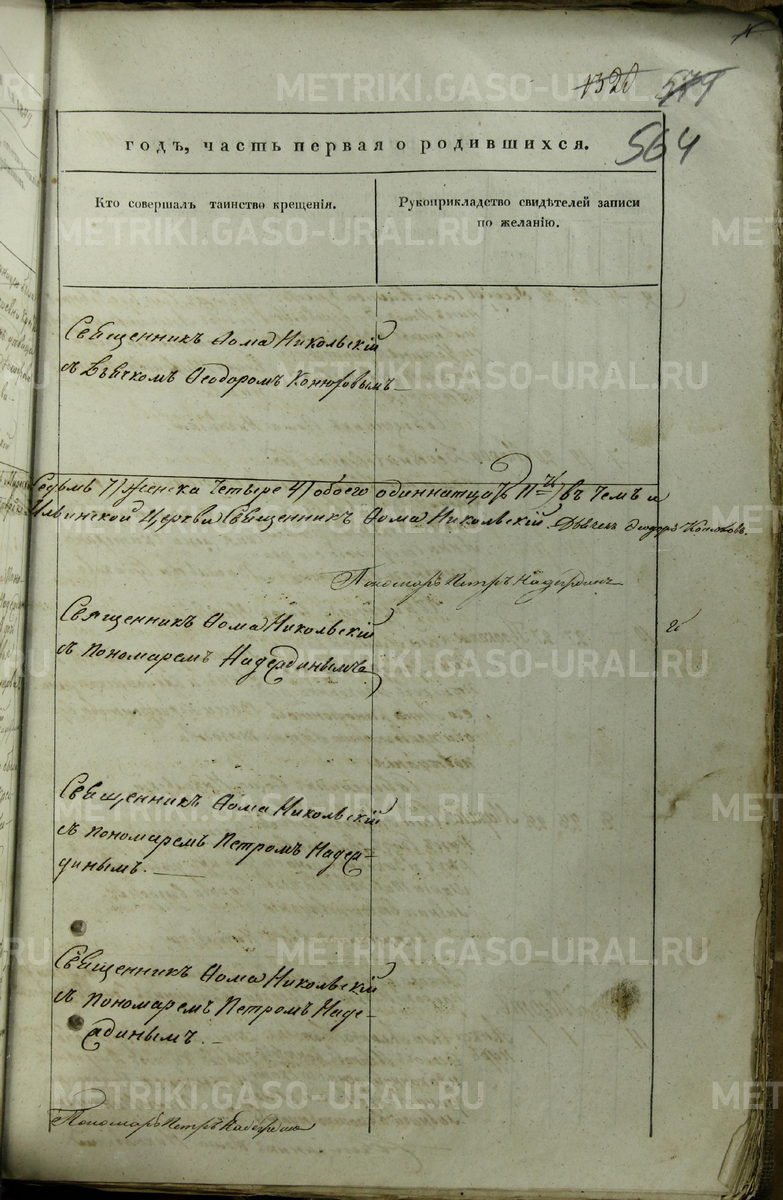 1320 579
564
годъ, часть первая о родившихся.
Кто совершалъ таинство крещенія.
Рукоприкладство свидѣтелей записи
по желанію.
Священникъ Ѳома Никольскій
съ Дьячкомъ Ѳеодоромъ Конюховымъ
Седьмъ 7/ Женска Четыре 4/ обоего одиннатцать 11ть/ въ чемъ и
Ильинской Церкви Священникъ Ѳома Никольскій. Дьячекъ Ѳидоръ Конюховъ.
Пономарь Петръ Надеждинъ
Священникъ Ѳома Никольскій
съ пономаремъ Надеждинымъ
Священникъ Ѳома Никольскій
съ пономаремъ Петромъ Надеж-
динымъ.
Священникъ Ѳома Никольскій
съ пономаремъ Петромъ Наде-
ждинымъ.
Пономарь Петръ Надеждинъ
METRIKI.GASO-URAL.RU